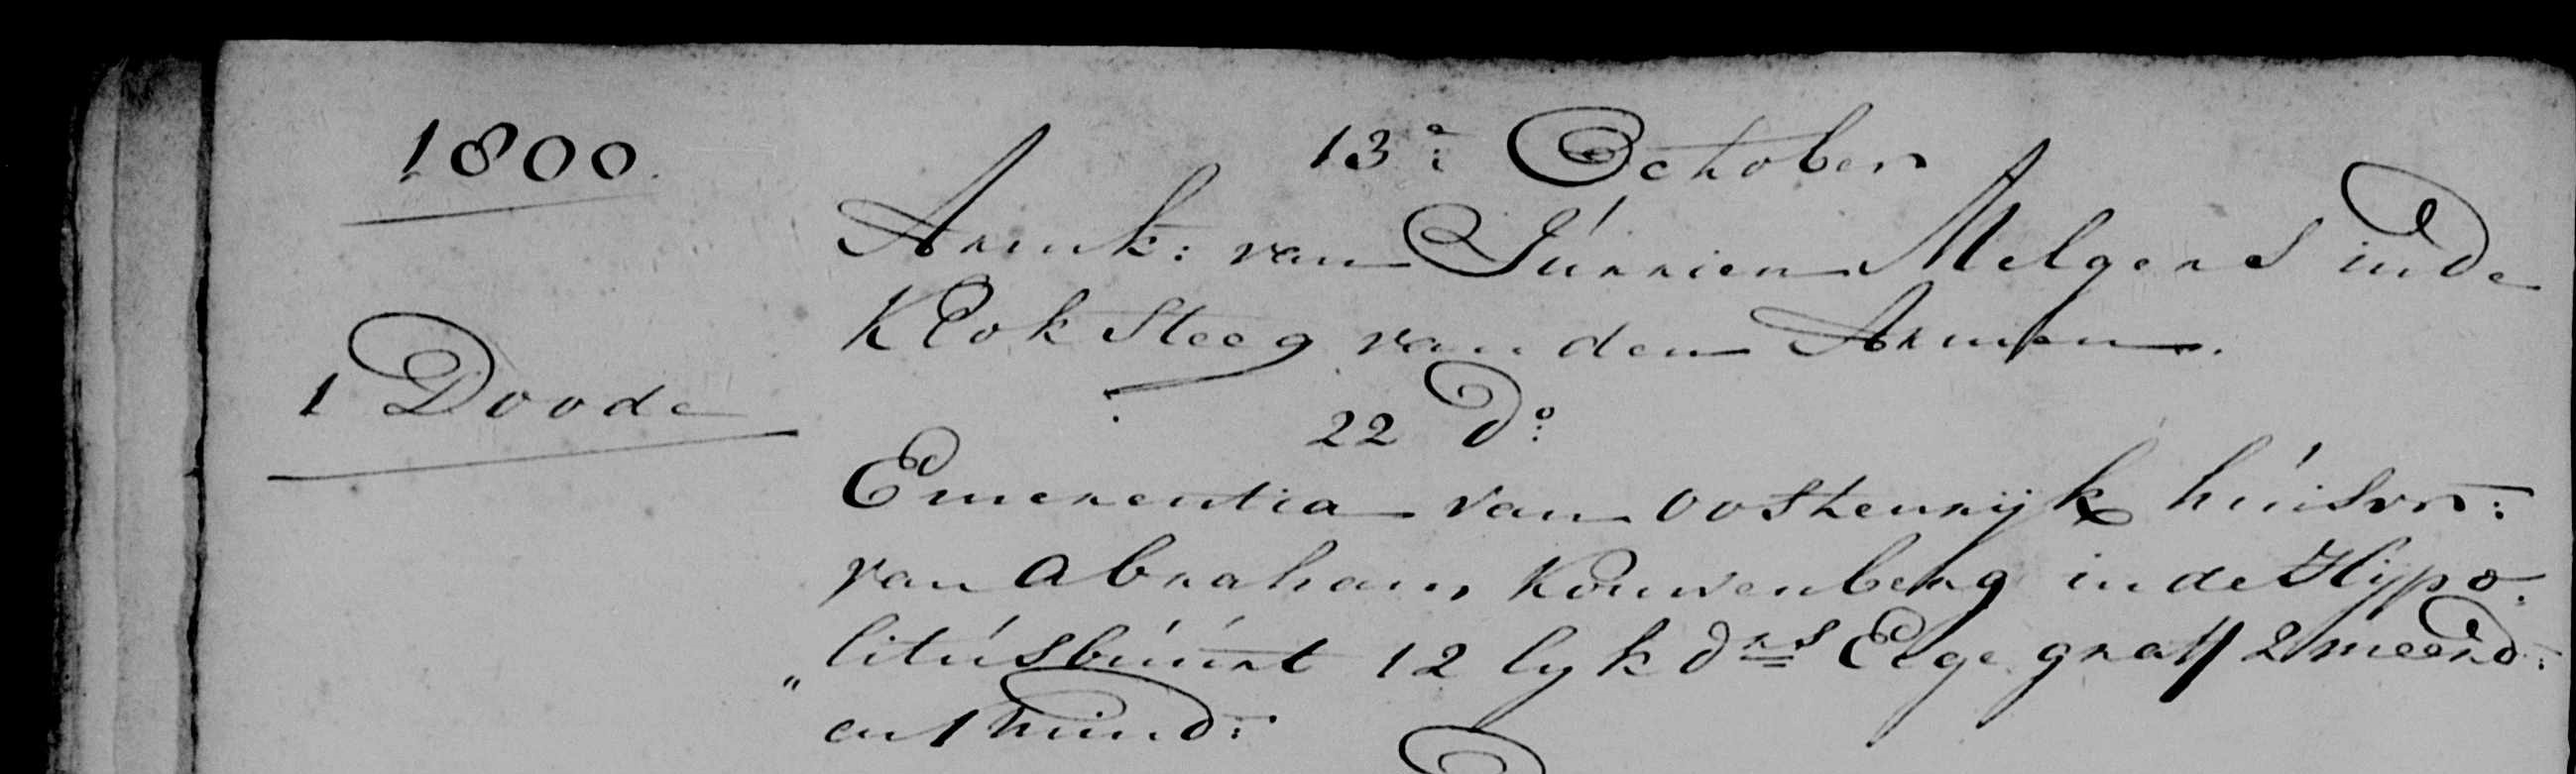 1800.
13e October
Armk: van Júrrien Melgers in de
Klok Steeg van den Armen.
1 Doode
22 do
Emerentia van oostenrijk húisvr:
van Abraham Kouwenberg in de Hijpo:
litúsbúúrt 12 lyk drs Eige graff 2 meerd:
en 1 mind: